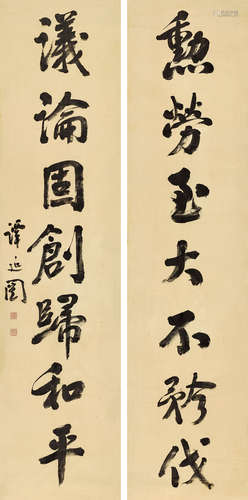 勲勞至大不矜伐
議論固創歸和平
譚延闓